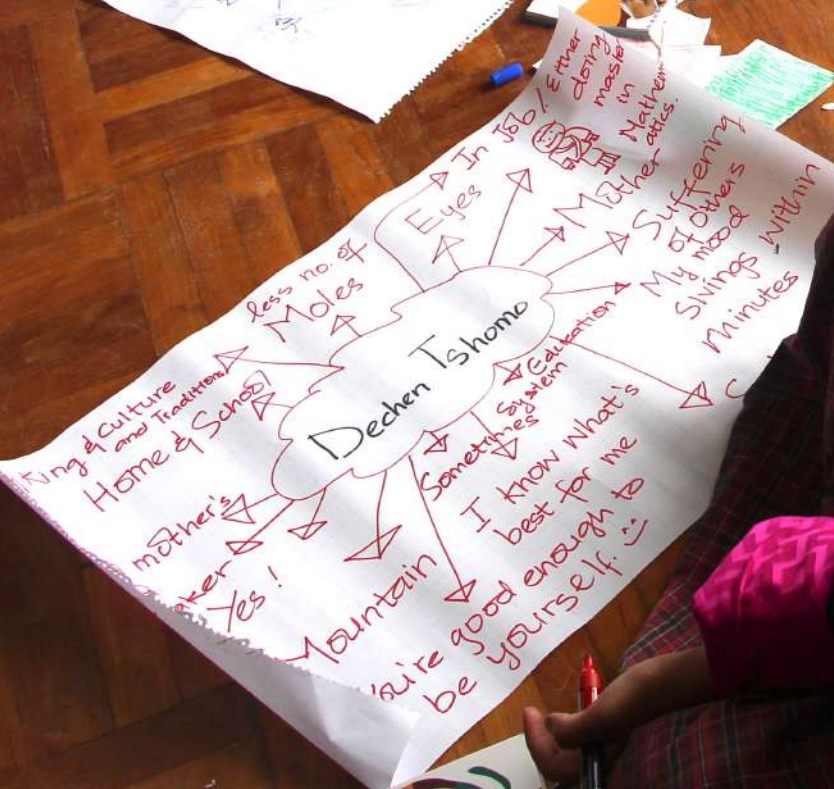 Dechen Tshomo
In Job / Either
doing
master
in
Mathem
atics.
Eyes
Mother
Suffering
of Others
My mood
swings within
minutes
Education
System
Sometimes
I know what's
best for me
You're good enough to
be yourself.
Mountain
Yes!
mother's
Home & School
King & Culture
and Traditions
less no. of
Moles